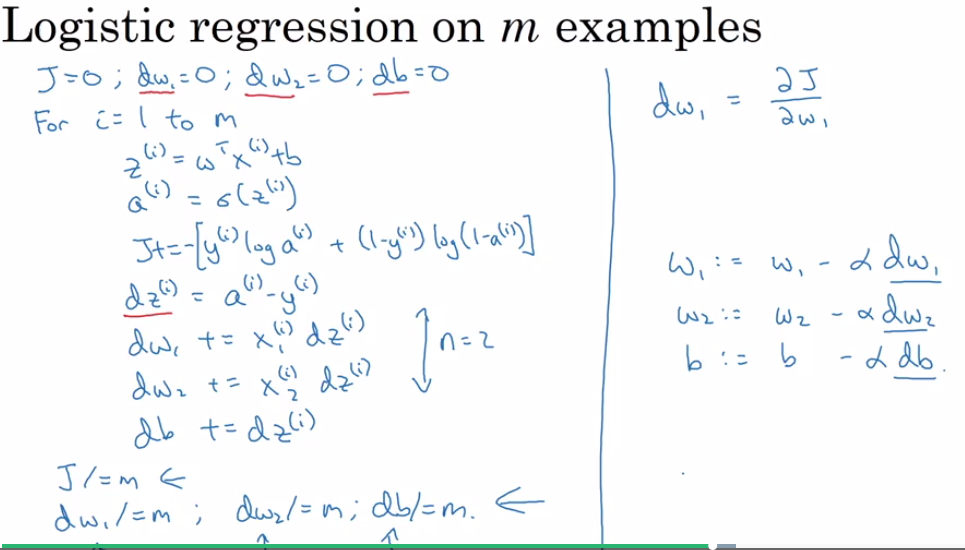 Logistic regression on m examples
J=0 ; dw₁=0 ; dw₂=0 ; db=0
For i=1 to m
z⁽ⁱ⁾ = ωᵀx⁽ⁱ⁾+b
a⁽ⁱ⁾ = σ(z⁽ⁱ⁾)
J+=-[y⁽ⁱ⁾ log a⁽ⁱ⁾ + (1-y⁽ⁱ⁾) log(1-a⁽ⁱ⁾)]
dz⁽ⁱ⁾ = a⁽ⁱ⁾-y⁽ⁱ⁾
dw₁ += x₁⁽ⁱ⁾ dz⁽ⁱ⁾
dw₂ += x₂⁽ⁱ⁾ dz⁽ⁱ⁾
n=2
db += dz⁽ⁱ⁾
J/=m ←
dw₁/=m ; dw₂/=m ; db/=m. ←
dw₁ = ∂J/∂w₁
w₁ := w₁ - α dw₁
w₂ := w₂ - α dw₂
b := b - α db.